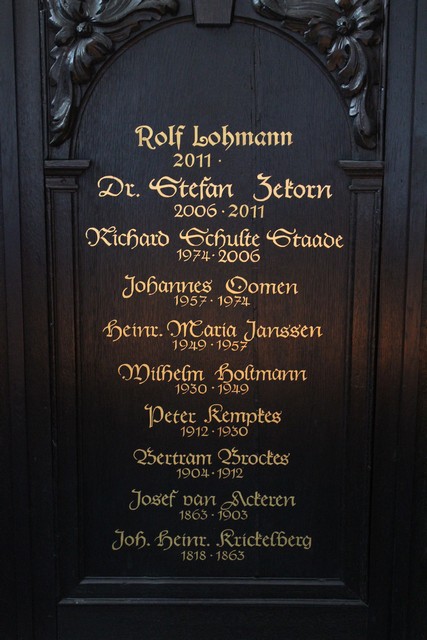 Rolf Lohmann
2011 ·
Dr. Stefan Zekorn
2006 · 2011
Richard Schulte Staade
1974 · 2006
Johannes Oomen
1957 · 1974
Heinr. Maria Janssen
1949 · 1957
Wilhelm Holtmann
1930 · 1949
Peter Kempkes
1912 · 1930
Bertram Brockes
1904 · 1912
Josef van Ackeren
1863 · 1903
Joh. Heinr. Krickelberg
1818 · 1863